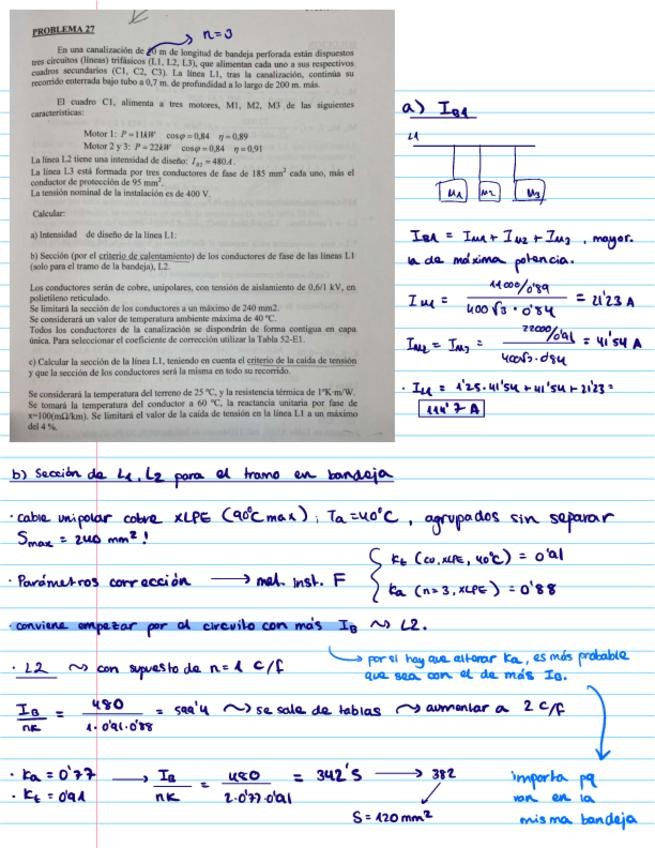 PROBLEMA 27
n=3
En una canalización de 20 m de longitud de bandeja perforada están dispuestos
tres circuitos (líneas) trifásicos (L1, L2, L3), que alimentan cada uno a sus respectivos
cuadros secundarios (C1, C2, C3). La línea L1, tras la canalización, continúa su
recorrido enterrada bajo tubo a 0,7 m. de profundidad a lo largo de 200 m. más.
El cuadro C1, alimenta a tres motores, M1, M2, M3 de las siguientes
características:
Motor 1: P = 11kW cosφ = 0,84 η = 0,89
Motor 2 y 3: P = 22kW cosφ = 0,84 η = 0,91
La línea L2 tiene una intensidad de diseño: I_B2 = 480A.
La línea L3 está formada por tres conductores de fase de 185 mm² cada uno, más el
conductor de protección de 95 mm².
La tensión nominal de la instalación es de 400 V.
Calcular:
a) Intensidad de diseño de la línea L1.
b) Sección (por el criterio de calentamiento) de los conductores de fase de las líneas L1
(solo para el tramo de la bandeja), L2.
Los conductores serán de cobre, unipolares, con tensión de aislamiento de 0,6/1 kV, en
polietileno reticulado.
Se limitará la sección de los conductores a un máximo de 240 mm2.
Se considerará un valor de temperatura ambiente máxima de 40 °C.
Todos los conductores de la canalización se dispondrán de forma contigua en capa
única. Para seleccionar el coeficiente de corrección utilizar la Tabla 52-E1.
c) Calcular la sección de la línea L1, teniendo en cuenta el criterio de la caída de tensión
y que la sección de los conductores será la misma en todo su recorrido.
Se considerará la temperatura del terreno de 25 °C, y la resistencia térmica de 1°K·m/W.
Se tomará la temperatura del conductor a 60 °C, la reactancia unitaria por fase de
x=100(mΩ/km). Se limitará el valor de la caída de tensión en la línea L1 a un máximo
del 4 %.
a) I_B1
L1
M1 M2 M3
I_B1 = I_M1 + I_M2 + I_M3, mayor.
la de máxima potencia.
I_M1 = (11000/0'89) / (400√3 · 0'84) = 21'23 A
I_M2 = I_M3 = (22000/0'91) / (400√3 · 0'84) = 41'54 A
· I_L1 = 1'25·41'54 + 41'54 + 21'23 =
114'7 A
b) Sección de L1, L2 para el tramo en bandeja
· cable unipolar cobre XLPE (90°C max) ; Ta = 40°C, agrupados sin separar
Smax = 240 mm² !
· Parámetros corrección → met. inst. F { Kt (Cu, XLPE, 40°C) = 0'91
Ka (n=3, XLPE) = 0'88
· conviene empezar por el circuito con más I_B ~> L2.
→ por si hay que alterar Ka, es más probable
que sea con el de más I_B.
· L2 ~> con supuesto de n=1 c/f
I_B / nK = 480 / (1·0'91·0'88) = 599'4 ~> se sale de tablas ~> aumentar a 2 c/f
· Ka = 0'77 → I_B / nK = 480 / (2·0'77·0'91) = 342'5 → 382
· Kt = 0'91
S = 120 mm²
importa pq
van en la
misma bandeja